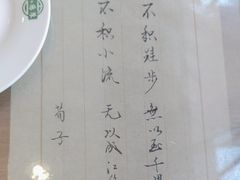 不积跬步 無以至千里
不积小流 无以成江
荀子